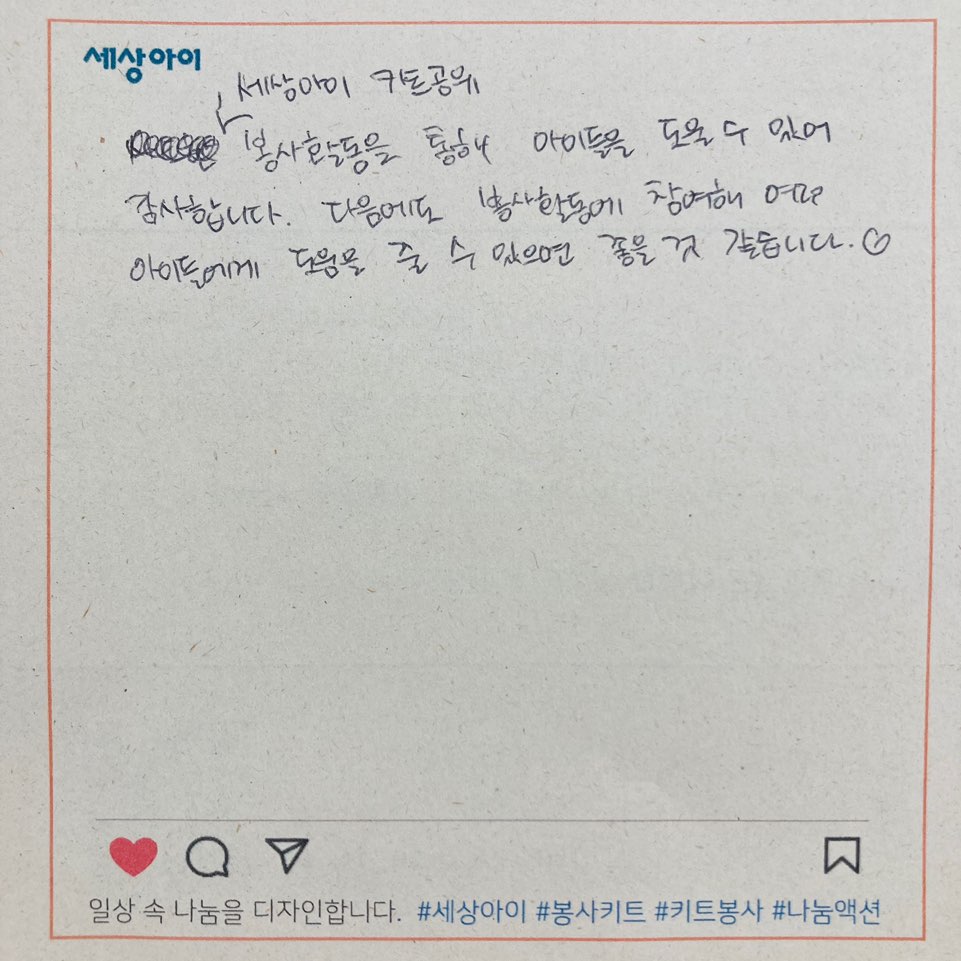 세상아이
세상아이 키트공위
봉사활동을 통해 아이들을 도울 수 있어
감사합니다. 다음에도 봉사활동에 참여해 여러
아이들에게 도움을 줄 수 있으면 좋을 것 같습니다.♡
일상 속 나눔을 디자인합니다. #세상아이 #봉사키트 #키트봉사 #나눔액션